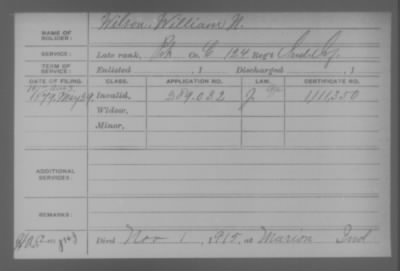 Wilson, William N.
NAME OF SOLDIER:
SERVICE: Late rank, Co. E 124 Reg't Ind. Inf.
TERM OF SERVICE: Enlisted , 1 Discharged , 1
DATE OF FILING. CLASS. APPLICATION NO. LAW. CERTIFICATE NO.
1879, May 29, Invalid, 289.082 1111350
Widow,
Minor,
ADDITIONAL SERVICES:
REMARKS:
Died Nov 1, 1915, at Marion Ind